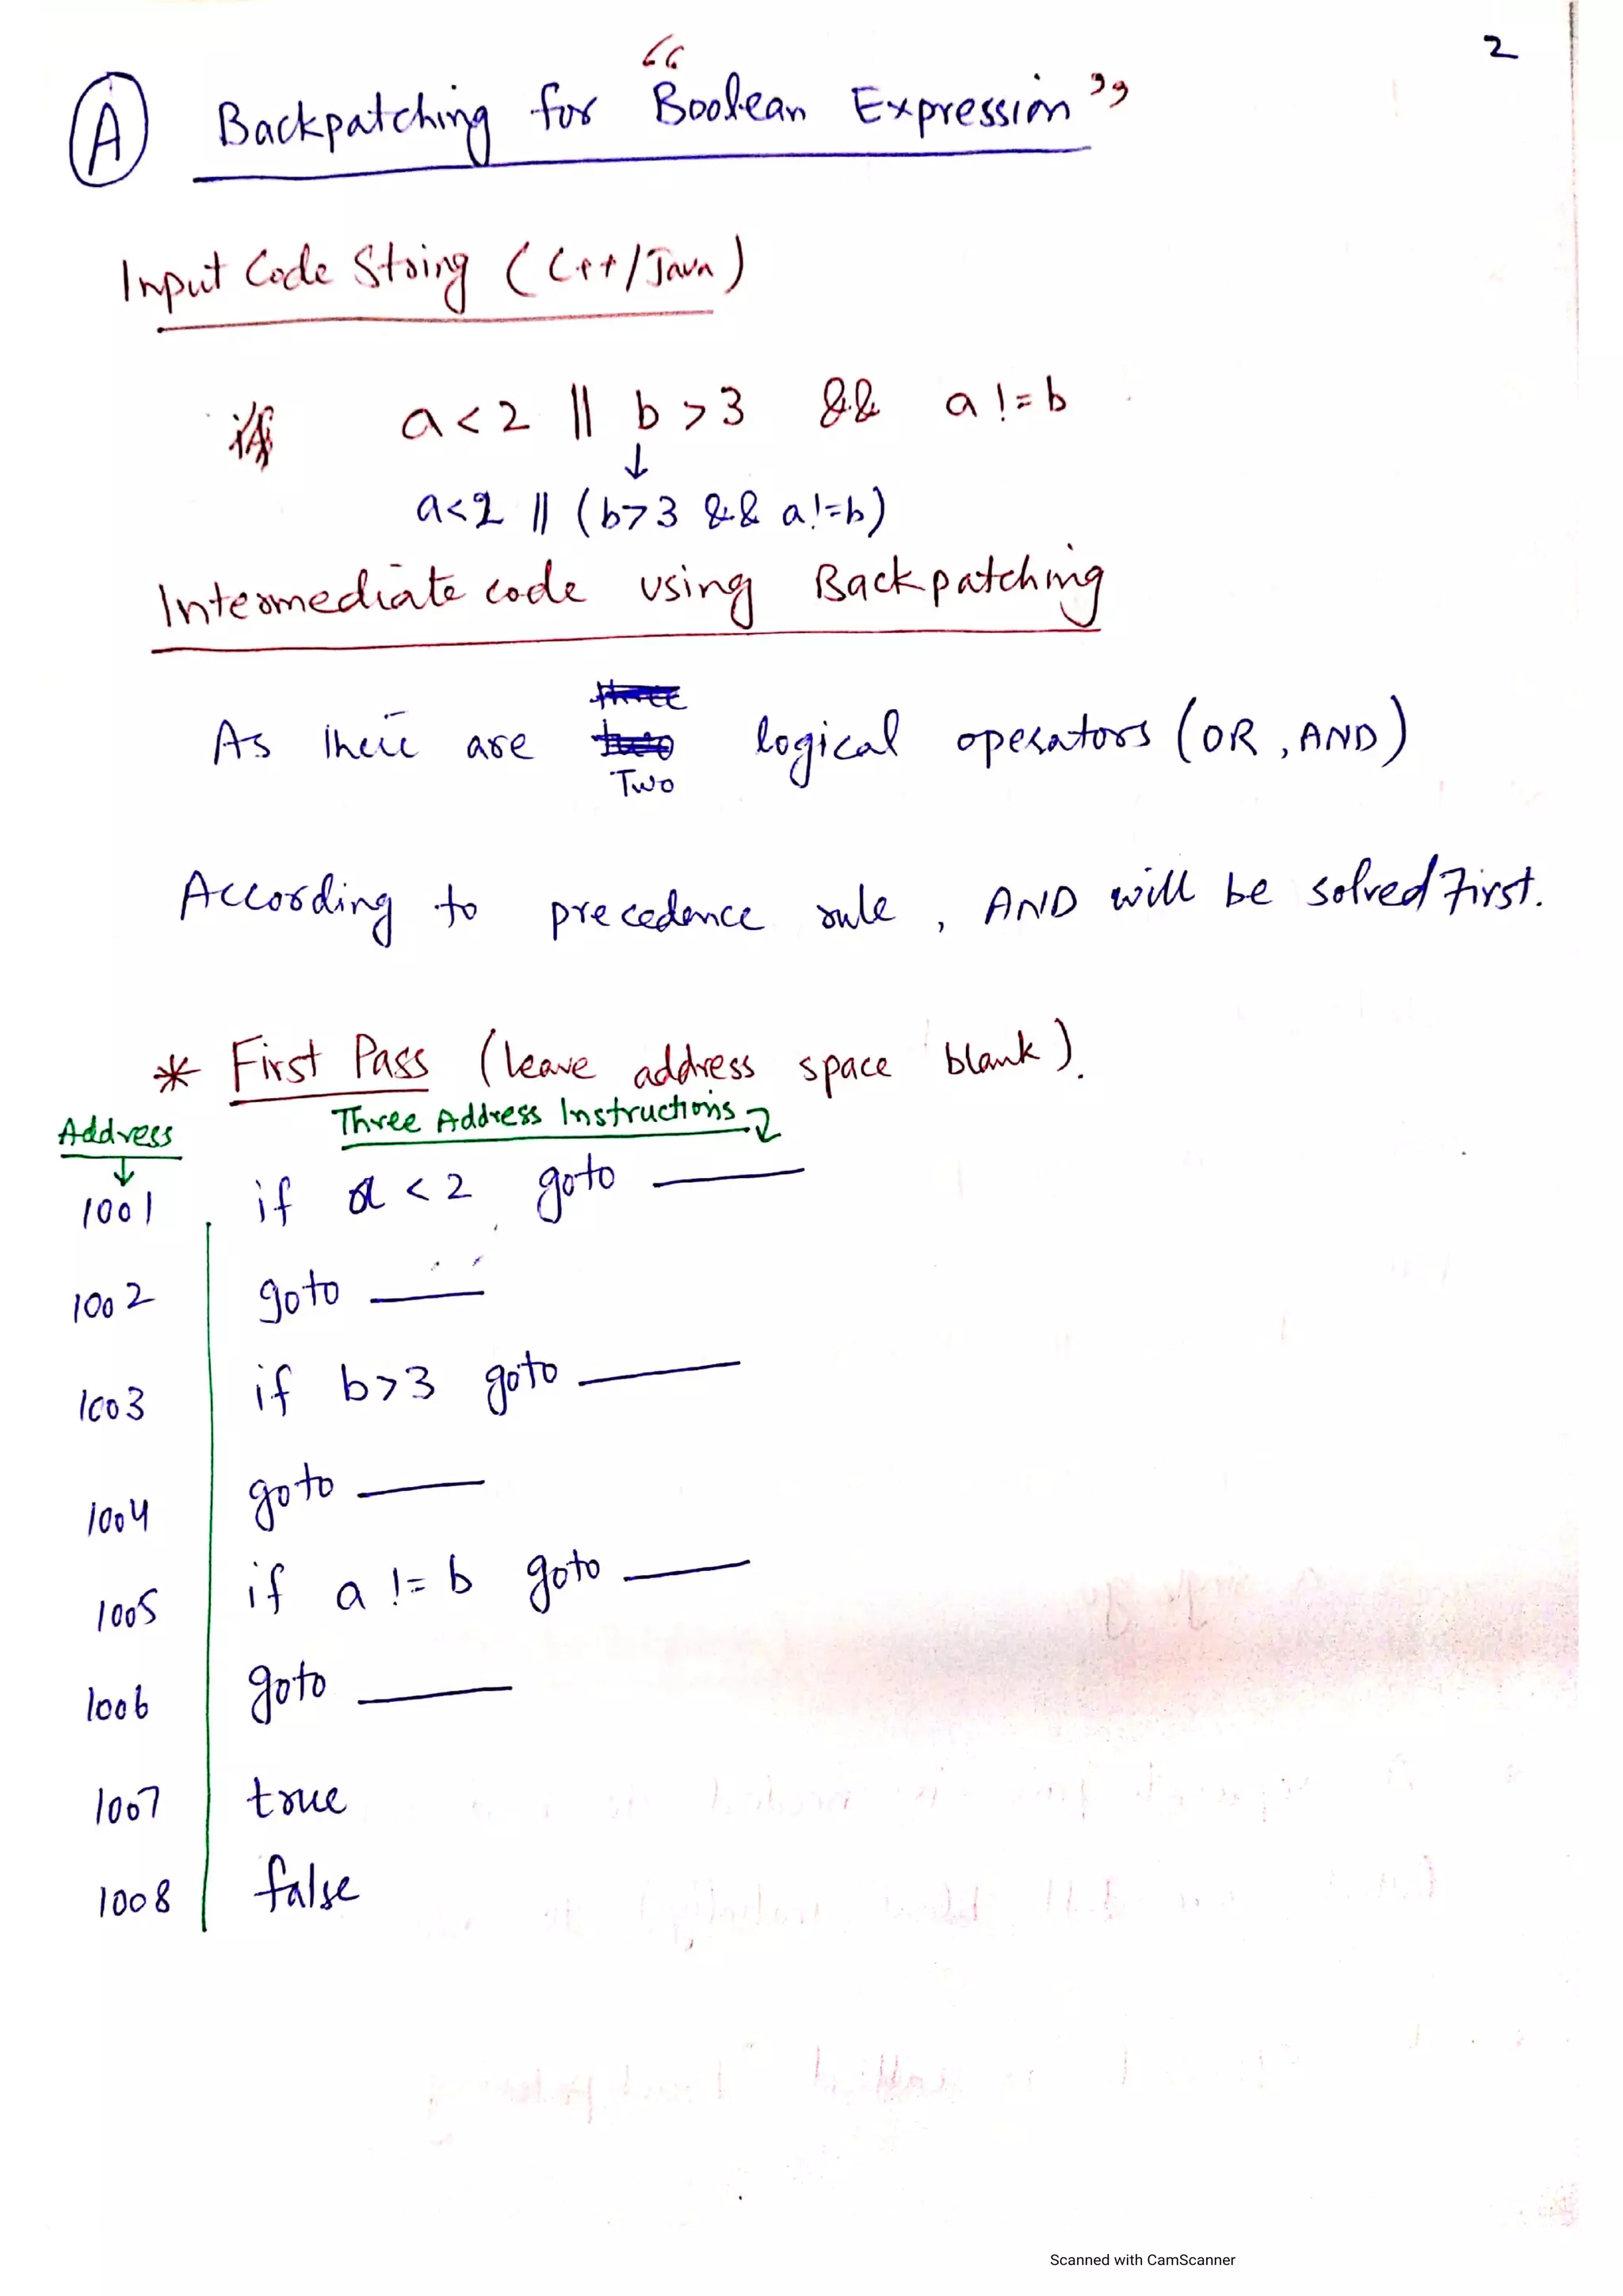 2
A Backpatching for "Boolean Expression"
Input Code String (C++/Java)
a<2 || b>3 && a!=b
↓
a<2 || (b>3 && a!=b)
Intermediate code using Backpatching
three
As there are two logical operators (OR, AND)
Two
According to precedence rule, AND will be solved First.
* First Pass (leave address space blank).
Address Three Address Instructions
↓
1001 if a < 2 goto ____
1002 goto ____
1003 if b>3 goto ____
1004 goto ____
1005 if a != b goto ____
1006 goto ____
1007 true
1008 false
Scanned with CamScanner